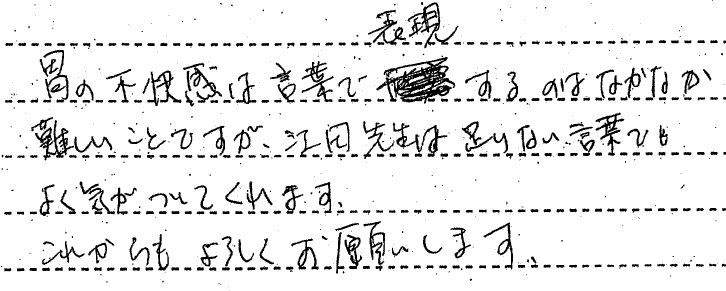 表現
胃の不快感は言葉で するのはなかなか
難しいことですが、江田先生は足りない言葉でも
よく気がついてくれます。
これからもよろしくお願いします。